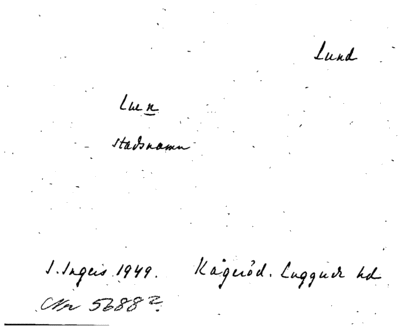 Lund
Lun
stadsnamn
I. Ingers 1949. Kågeröd. Luggude hd
Nr 5688